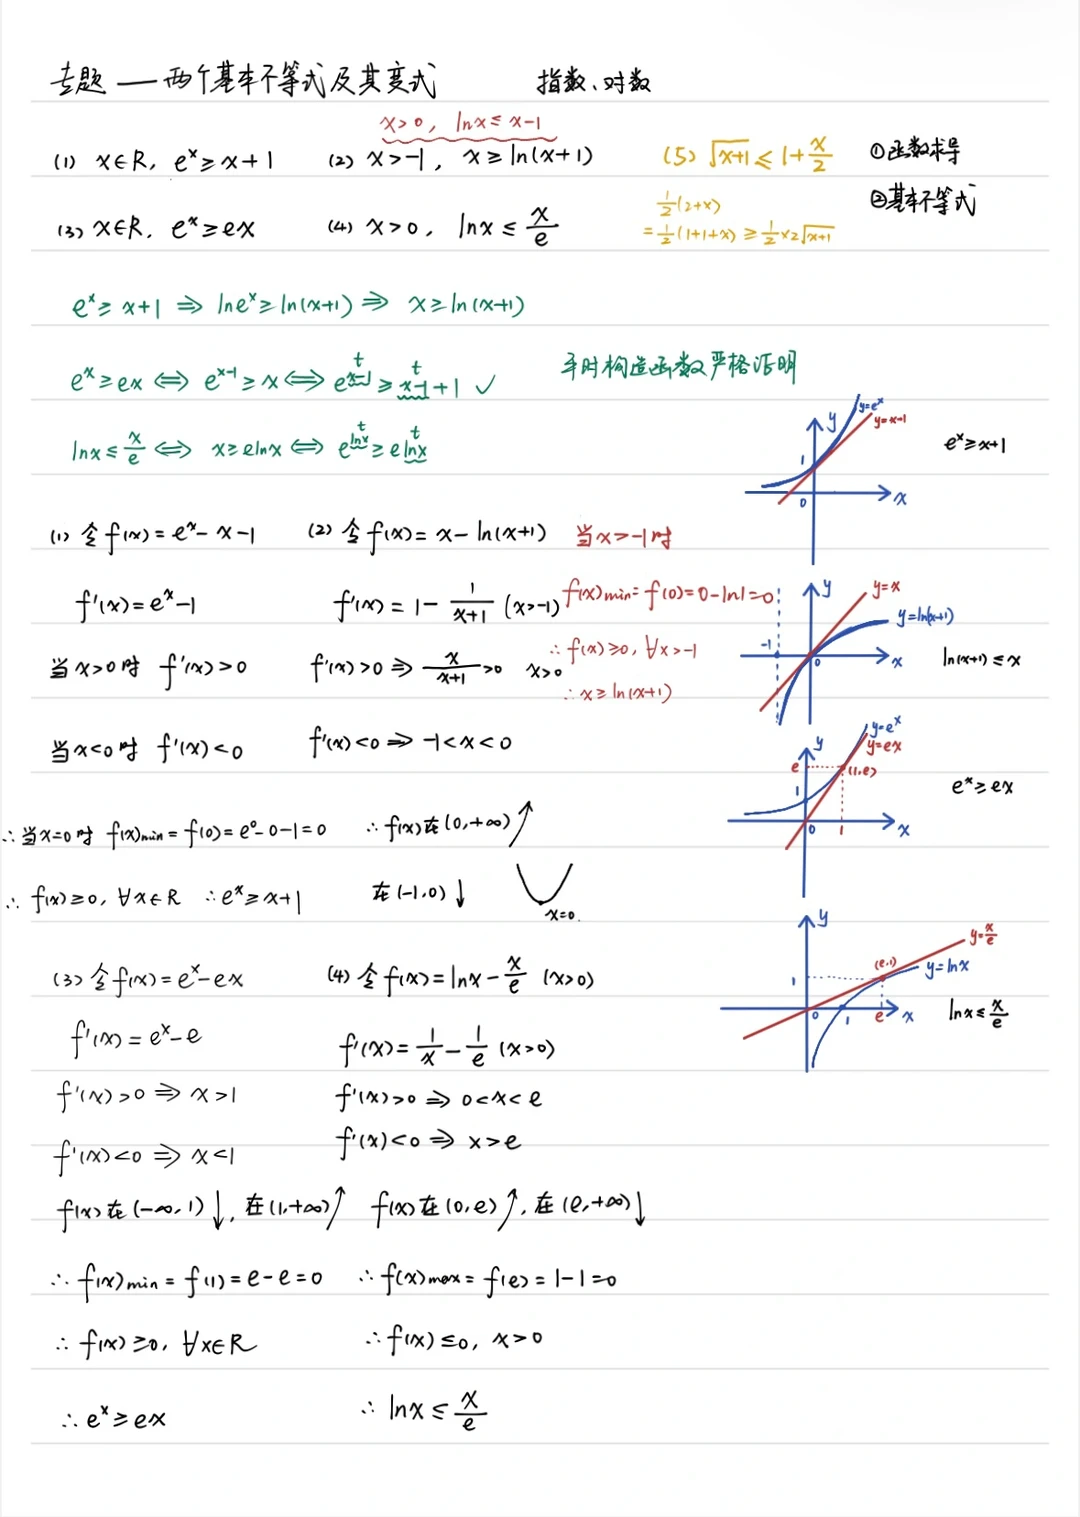 专题 — 两个基本不等式及其变式 指数、对数
x>0, lnx≤x-1
(1) x∈R, eˣ≥x+1 (2) x>-1, x≥ln(x+1) (5) √(x+1)≤1+x/2 ①函数求导
②基本不等式
(3) x∈R, eˣ≥ex (4) x>0, lnx≤x/e
½(2+x)
=½(1+1+x)≥½×2√(x+1)
eˣ≥x+1 ⇒ lneˣ≥ln(x+1) ⇒ x≥ln(x+1)
t t
eˣ≥ex ⇔ eˣ⁻¹≥x ⇔ eˣ⁻¹≥x-1+1 ✓
平时构造函数严格证明
t t
lnx≤x/e ⇔ x≥elnx ⇔ e^(lnx)≥elnx
y=eˣ
y=x+1
y
1
0
x
eˣ≥x+1
(1) 令f(x)=eˣ-x-1 (2) 令f(x)=x-ln(x+1) 当x>-1时
f'(x)=eˣ-1 f'(x)=1-1/(x+1) (x>-1) f(x)min=f(0)=0-ln1=0
当x>0时 f'(x)>0 f'(x)>0 ⇒ x/(x+1)>0 x>0
∴f(x)≥0, ∀x>-1
∴x≥ln(x+1)
当x<0时 f'(x)<0 f'(x)<0 ⇒ -1<x<0
y
y=x
y=ln(x+1)
-1
0
x
ln(x+1)≤x
y=eˣ
y=ex
y
e
(1,e)
1
0
1
x
eˣ≥ex
∴当x=0时 f(x)min=f(0)=e⁰-0-1=0 ∴f(x)在(0,+∞)↗
∴f(x)≥0, ∀x∈R ∴eˣ≥x+1 在(-1,0)↓
x=0.
y
y=x/e
(e,1)
y=lnx
1
0
1
e
x
lnx≤x/e
(3) 令f(x)=eˣ-ex (4) 令f(x)=lnx-x/e (x>0)
f'(x)=eˣ-e f'(x)=1/x-1/e (x>0)
f'(x)>0 ⇒ x>1 f'(x)>0 ⇒ 0<x<e
f'(x)<0 ⇒ x<1 f'(x)<0 ⇒ x>e
f(x)在(-∞,1)↓, 在(1,+∞)↗ f(x)在(0,e)↗, 在(e,+∞)↓
∴f(x)min=f(1)=e-e=0 ∴f(x)max=f(e)=1-1=0
∴f(x)≥0, ∀x∈R ∴f(x)≤0, x>0
∴eˣ≥ex ∴lnx≤x/e